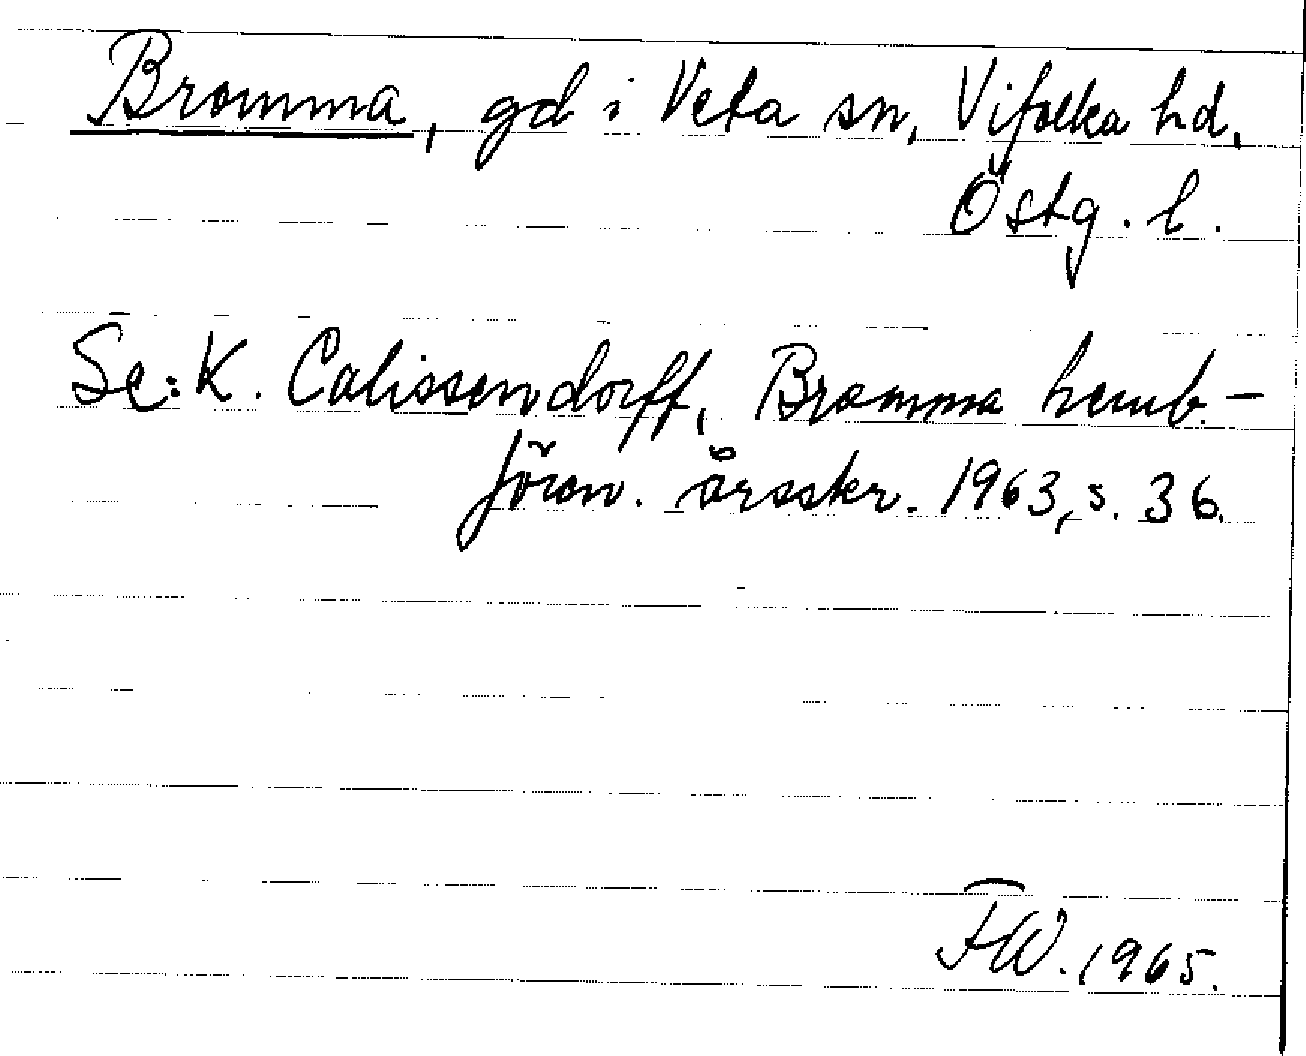 Bromma, gd i Veta sn, Vifolka hd,
Östg. l.
Se: K. Calissendorff, Bromma hemb.-
fören. årsskr. 1963, s. 36.
FW. 1965.